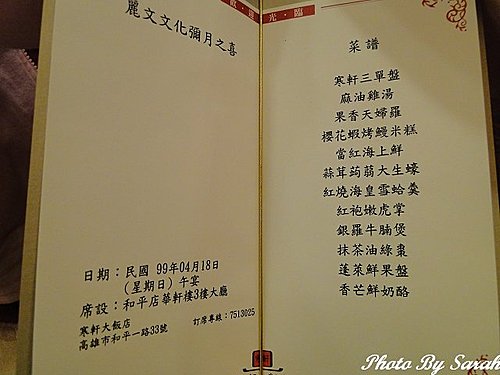 光·臨
麗文文化彌月之喜
日期：民國 99年04月18日
（星期日）午宴
席設：和平店華軒樓3樓大廳
寒軒大飯店
訂席專線：7513025
高雄市和平一路33號
菜譜
寒軒三單盤
麻油雞湯
果香天婦羅
櫻花蝦烤鰻米糕
當紅海上鮮
蒜茸蒟蒻大生蠔
紅燒海皇雪蛤羹
紅袍嫩虎掌
銀羅牛腩煲
抹茶油綠棗
蓬萊鮮果盤
香芒鮮奶酪
Photo By Sarah